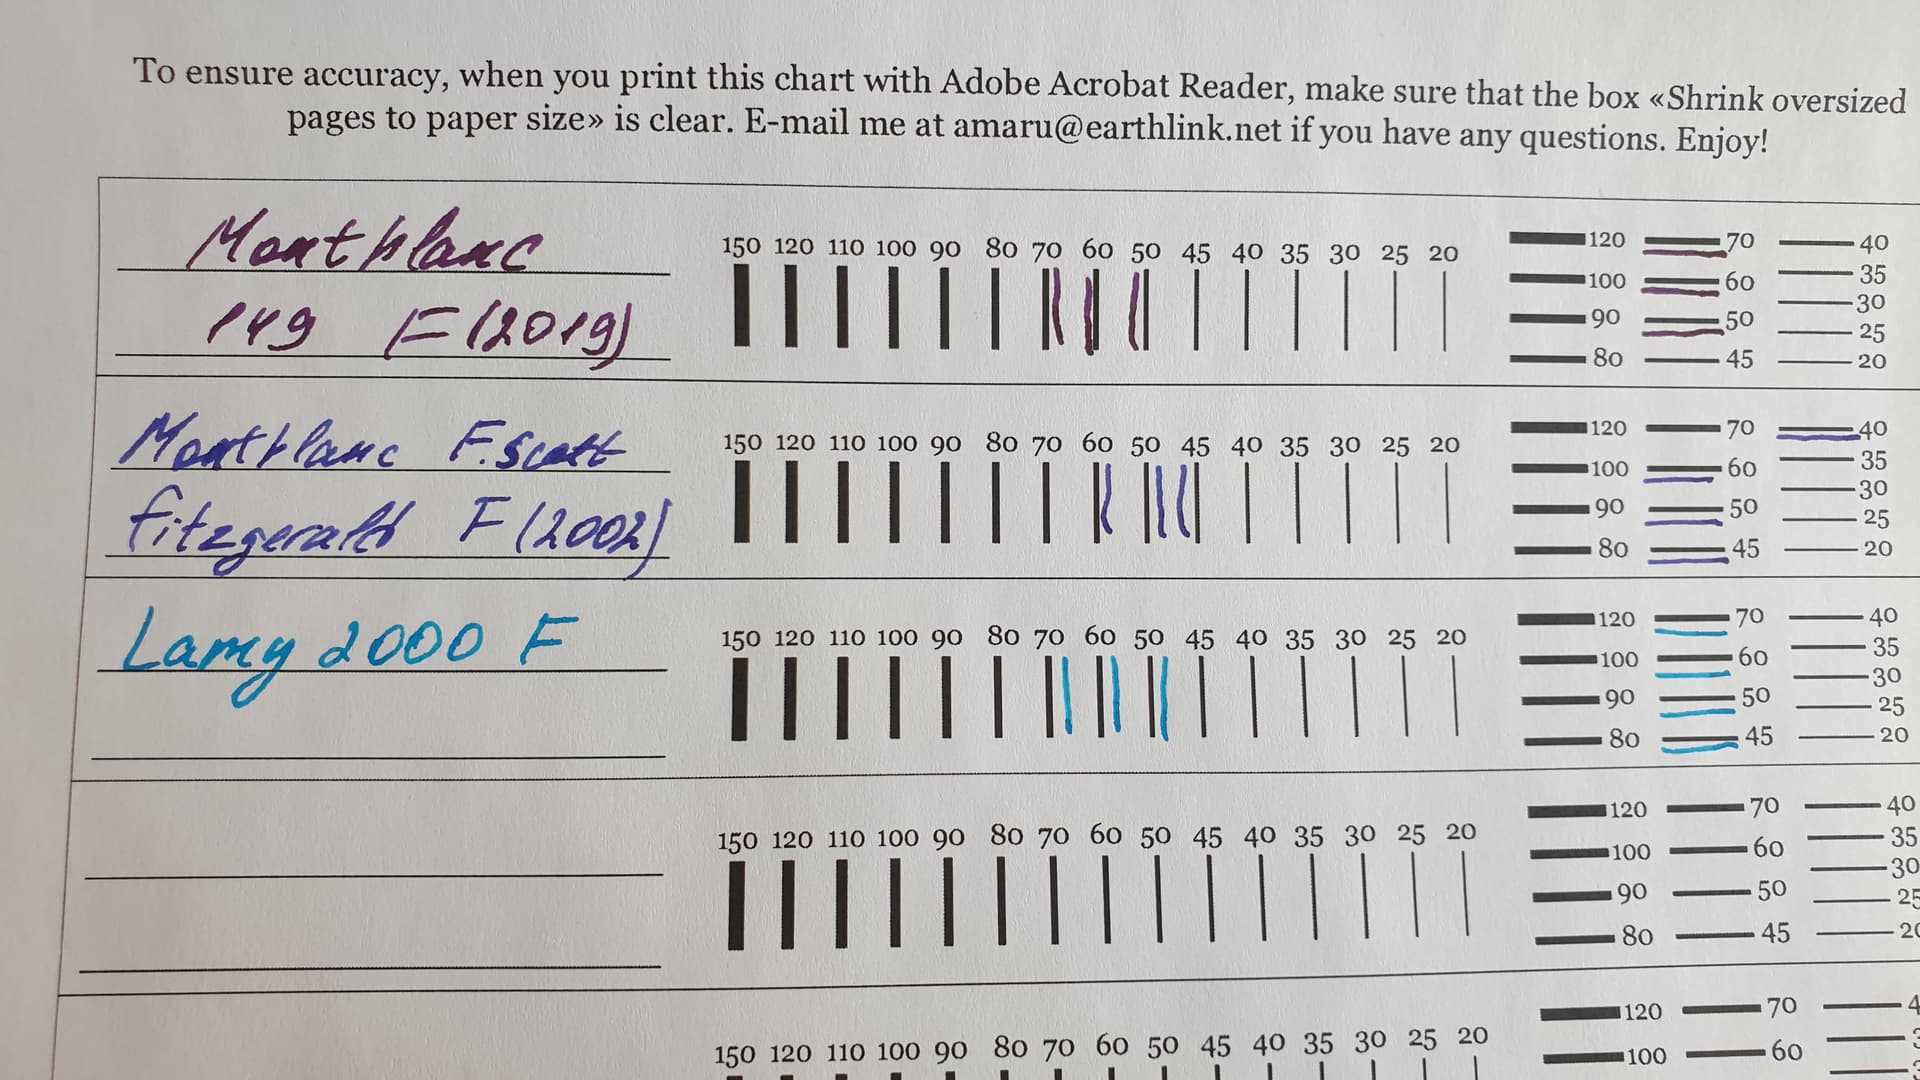 To ensure accuracy, when you print this chart with Adobe Acrobat Reader, make sure that the box «Shrink oversized
pages to paper size» is clear. E-mail me at amaru@earthlink.net if you have any questions. Enjoy!
Montblanc
149 F (2019)
150 120 110 100 90 80 70 60 50 45 40 35 30 25 20
120 70 40
100 60 35
30
90 50 25
80 45 20
Montblanc F.Scott
fitzgerald F (2002)
150 120 110 100 90 80 70 60 50 45 40 35 30 25 20
120 70 40
100 60 35
30
90 50 25
80 45 20
Lamy 2000 F
150 120 110 100 90 80 70 60 50 45 40 35 30 25 20
120 70 40
100 60 35
30
90 50 25
80 45 20
150 120 110 100 90 80 70 60 50 45 40 35 30 25 20
120 70 40
100 60 35
30
90 50 25
80 45 20
150 120 110 100 90 80 70 60 50 45 40 35 30 25 20
120 70
100 60